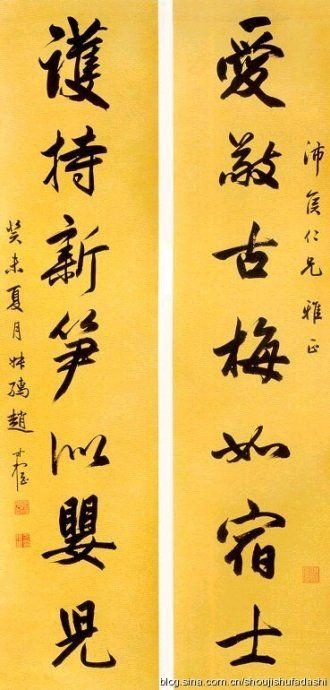 沛侯仁兄雅正
愛敬古梅如宿士
護持新笋似嬰兒
癸未夏月叔孺趙時棡
blog.sina.com.cn/shoujishufadashi